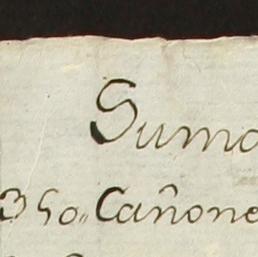 Suma
350,, Cañone